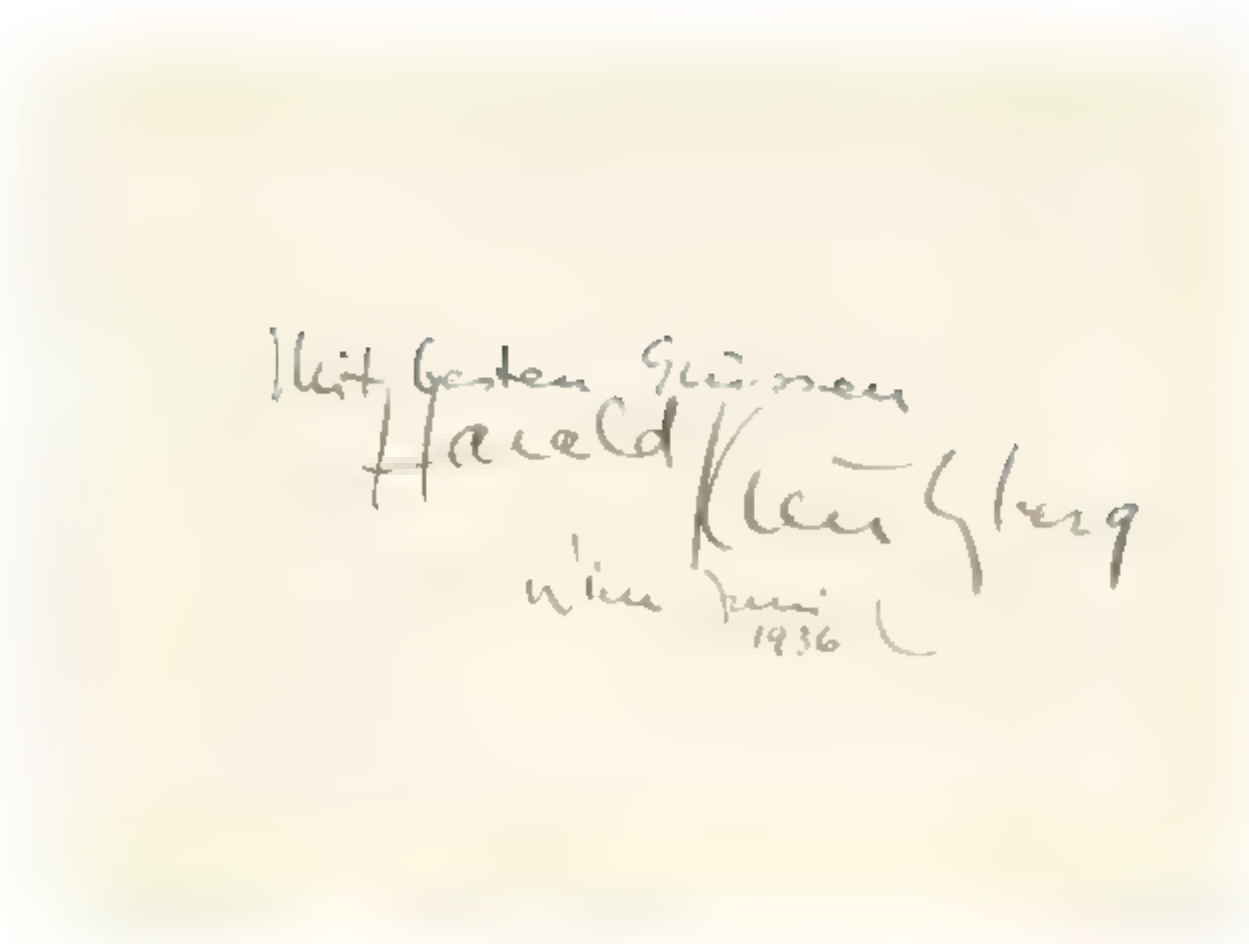 Mit besten Grüssen
Harald Kreutzberg
Wien Juni
1936